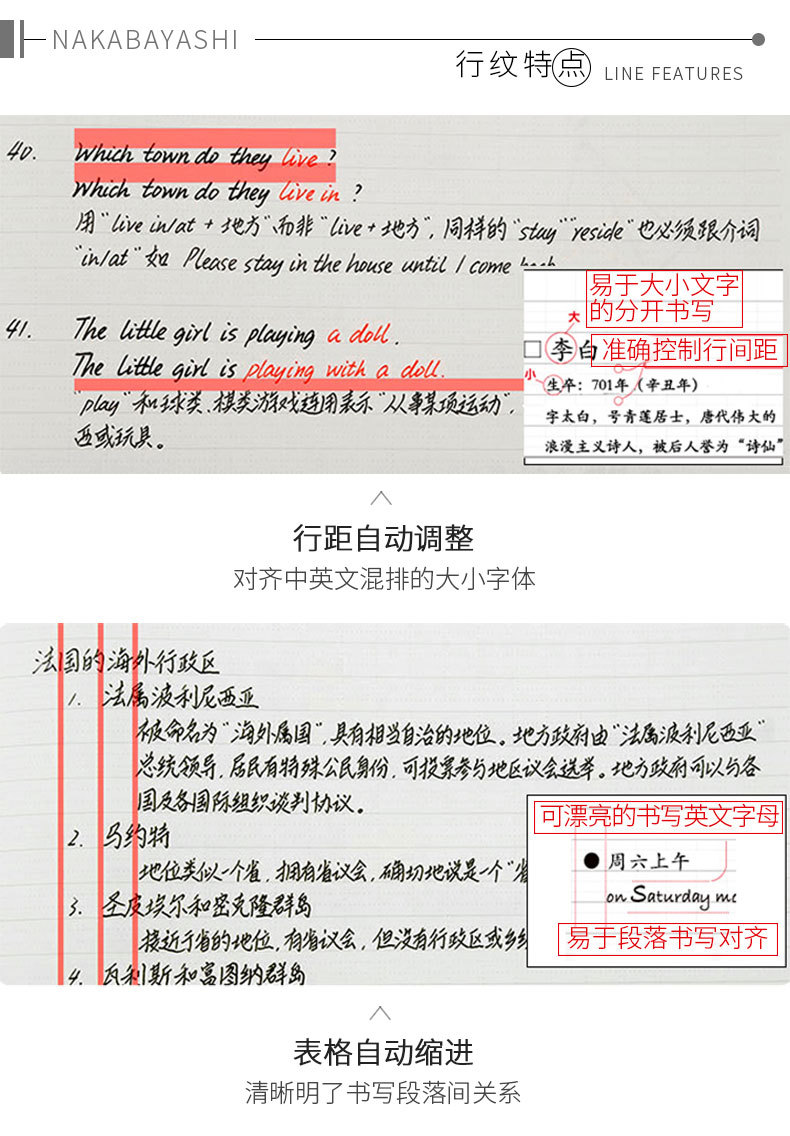 NAKABAYASHI
行纹特点 LINE FEATURES
40. Which town do they live ?
Which town do they live in ?
用“live in/at + 地方”、而非“live + 地方”, 同样的“stay”“reside”也必须跟介词
“in/at”如 Please stay in the house until I come back
41. The little girl is playing a doll.
The little girl is playing with a doll.
“play”和球类、棋类游戏连用表示“从事某项运动”,
西或玩具。
易于大小文字
的分开书写
大
李白
准确控制行间距
小
生卒：701年（辛丑年）
字太白，号青莲居士，唐代伟大的
浪漫主义诗人，被后人誉为“诗仙”
行距自动调整
对齐中英文混排的大小字体
法国的海外行政区
1. 法属波利尼西亚
被命名为“海外属国”, 具有相当自治的地位。地方政府由“法属波利尼西亚”
总统领导, 居民有特殊公民身份, 可投票参与地区议会选举。地方政府可以与各
国及各国际组织谈判协议。
2. 马约特
地位类似一个省, 拥有省议会, 确切地说是一个“省
3. 圣皮埃尔和密克隆群岛
接近于省的地位, 有省议会, 但没有行政区或乡镇
4. 瓦利斯和富图纳群岛
可漂亮的书写英文字母
●周六上午
on Saturday mo
易于段落书写对齐
表格自动缩进
清晰明了书写段落间关系